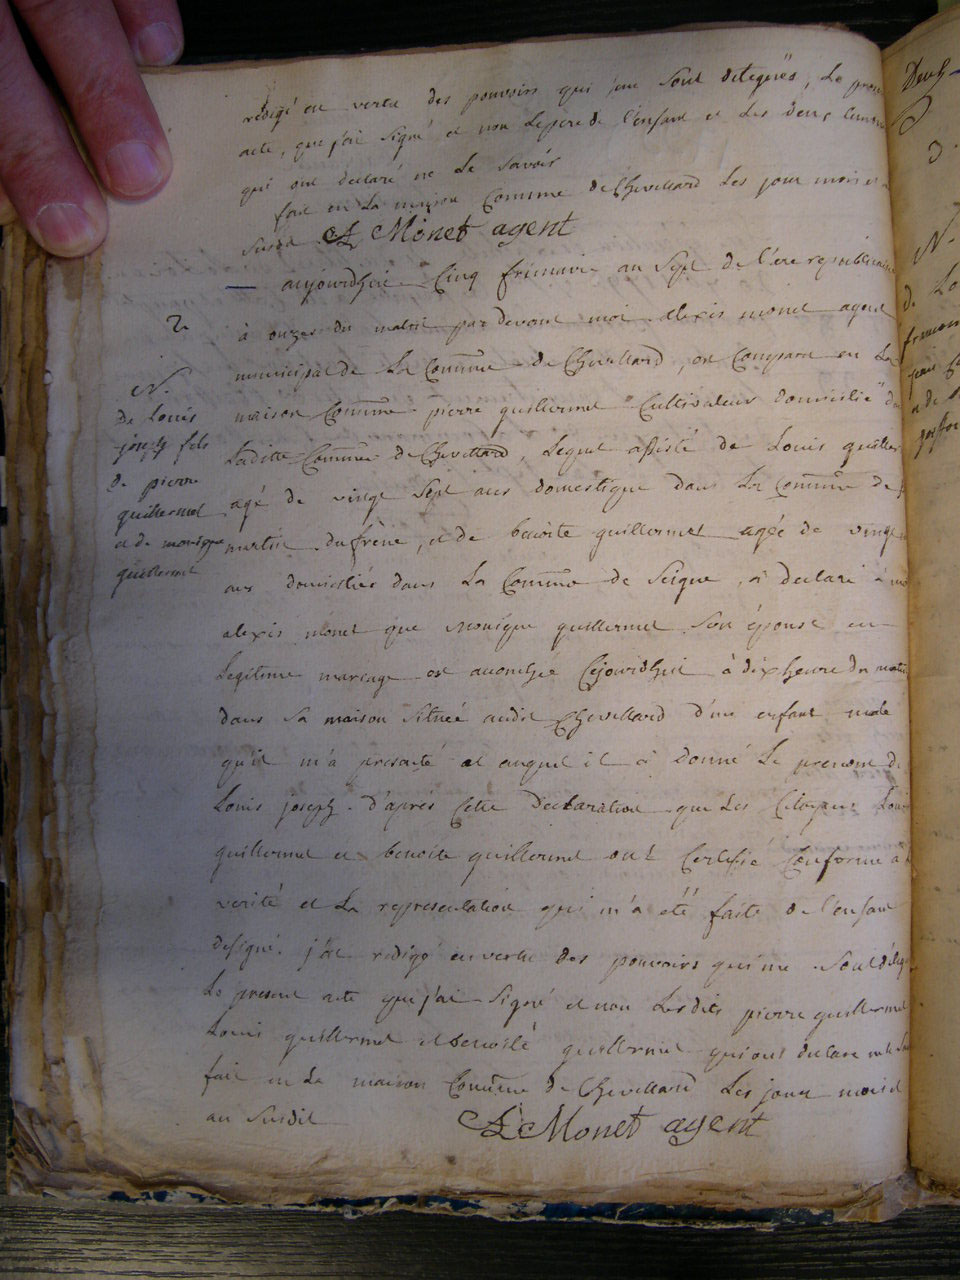 rédigé en vertu des pouvoirs qui me sont delegués, Le
acte, que j'ai signé et non Le pere de l'enfant et Les deux
qui ont declaré ne Le savoir
fait en La maison Comune de Chevillard Les jour mois et
susdit A Monet agent
aujourdhui Cinq frimaire an Sept de l'ére republicaine
2
à onze du matin par devant moi alexis monet agent
municipal de La Comune de Chevillard, est Comparu en La
N.
de Louis
joseph fils
de pierre
guillermet
et de monique
guillermet
maison Comune pierre guillermet Cultivateur domicilié
Ladite Comune de Chevillard, Lequel assisté de Louis
agé de vingt Sept ans domestique dans La Comune de
martin dufrêne, et de benoite guillermet agée de vingt
ans domiciliés dans La Comune de à declaré à
alexis monet que monique guillermet Son épouse en
Legitime mariage est accouchée Cejourdhui à dix heure du matin
dans Sa maison Située audit Chevillard d'un enfant male
qu'il m'à presenté et auquel il à donné Le prenom de
Louis joseph. d'aprés Cette declaration que Les Citoyens Louis
guillermet et benoite guillermet ont Certifié Conforme à
verité et La representation qui m'à été faite de l'enfant
designé. j'ai redigé en vertu des pouvoirs qui me Sont
Le present acte que j'ai Signé et non Lesdits pierre guillermet
Louis guillermet et benoite guillermet qui ont declaré ne le
fait en La maison Comune de Chevillard Les jour mois et
an Susdit A Monet agent